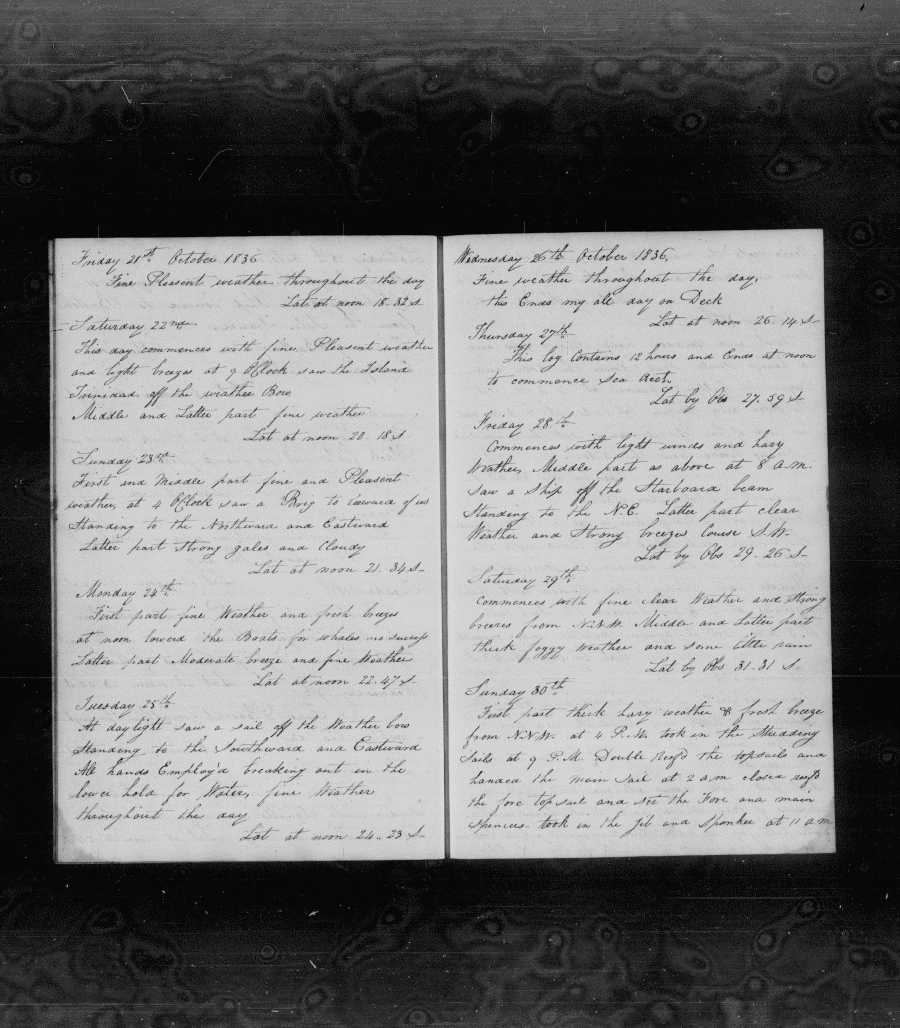 Friday 21th October 1836
Fine Pleasent weather throughout the day
Lat at noon 18.32 S
Saturday 22nd
This day commences with fine Pleasent weather
and light breezes at 9 OClock saw the Island
Trinidad off the weather Bow
Middle and Latter part fine weather
Lat at noon 20.18 S
Sunday 23th
First and Middle part fine and Pleasent
weather, at 4 OClock saw a Brig to Leward of us
Standing to the Northward and Eastward
Latter part Strong gales and Cloudy
Lat at noon 21.34 S
Monday 24th
First part fine Weather and fresh brezes
at noon lowerd the Boats for whales no success
Latter part Moderate breeze and fine Weather
Lat at noon 22.47 S
Tuesday 25th
At daylight saw a sail off the Weather bow
Standing to the Southward and Eastward
All hands Employ'd breaking out in the
lower hold for Water, fine Weather
throughout the day
Lat at noon 24.23 S
Wednesday 26th October 1836,
Fine weather throughout the day,
this Ends my all day on Deck
Lat at noon 26.14 S
Thursday 27th
This log Contains 12 hours and Ends at noon
to commence Sea Acct.
Lat by Obs 27.59 S
Friday 28th
Commences with light winds and hazy
Weather, Middle part as above at 8 a.m.
saw a Ship off the Starboard beam
Standing to the N.E. Latter part clear
Weather and Strong breezes Course S.W.
Lat by Obs 29.26 S
Saturday 29th
Commences with fine clear Weather and Strong
breezes from N.N.W. Middle and Latter part
thick foggy Weather and some little rain
Lat by Obs 31.31 S
Sunday 30th
First part thick hazy weather & fresh breeze
from N.N.W. at 4 P.M. took in the Studding
Sails at 9 P.M. Double reef'd the topsails and
handed the main Sail at 2 a.m. closed reef'd
the fore topsail and set the Fore and main
Spencers took in the Jib and Spanker at 11 a.m